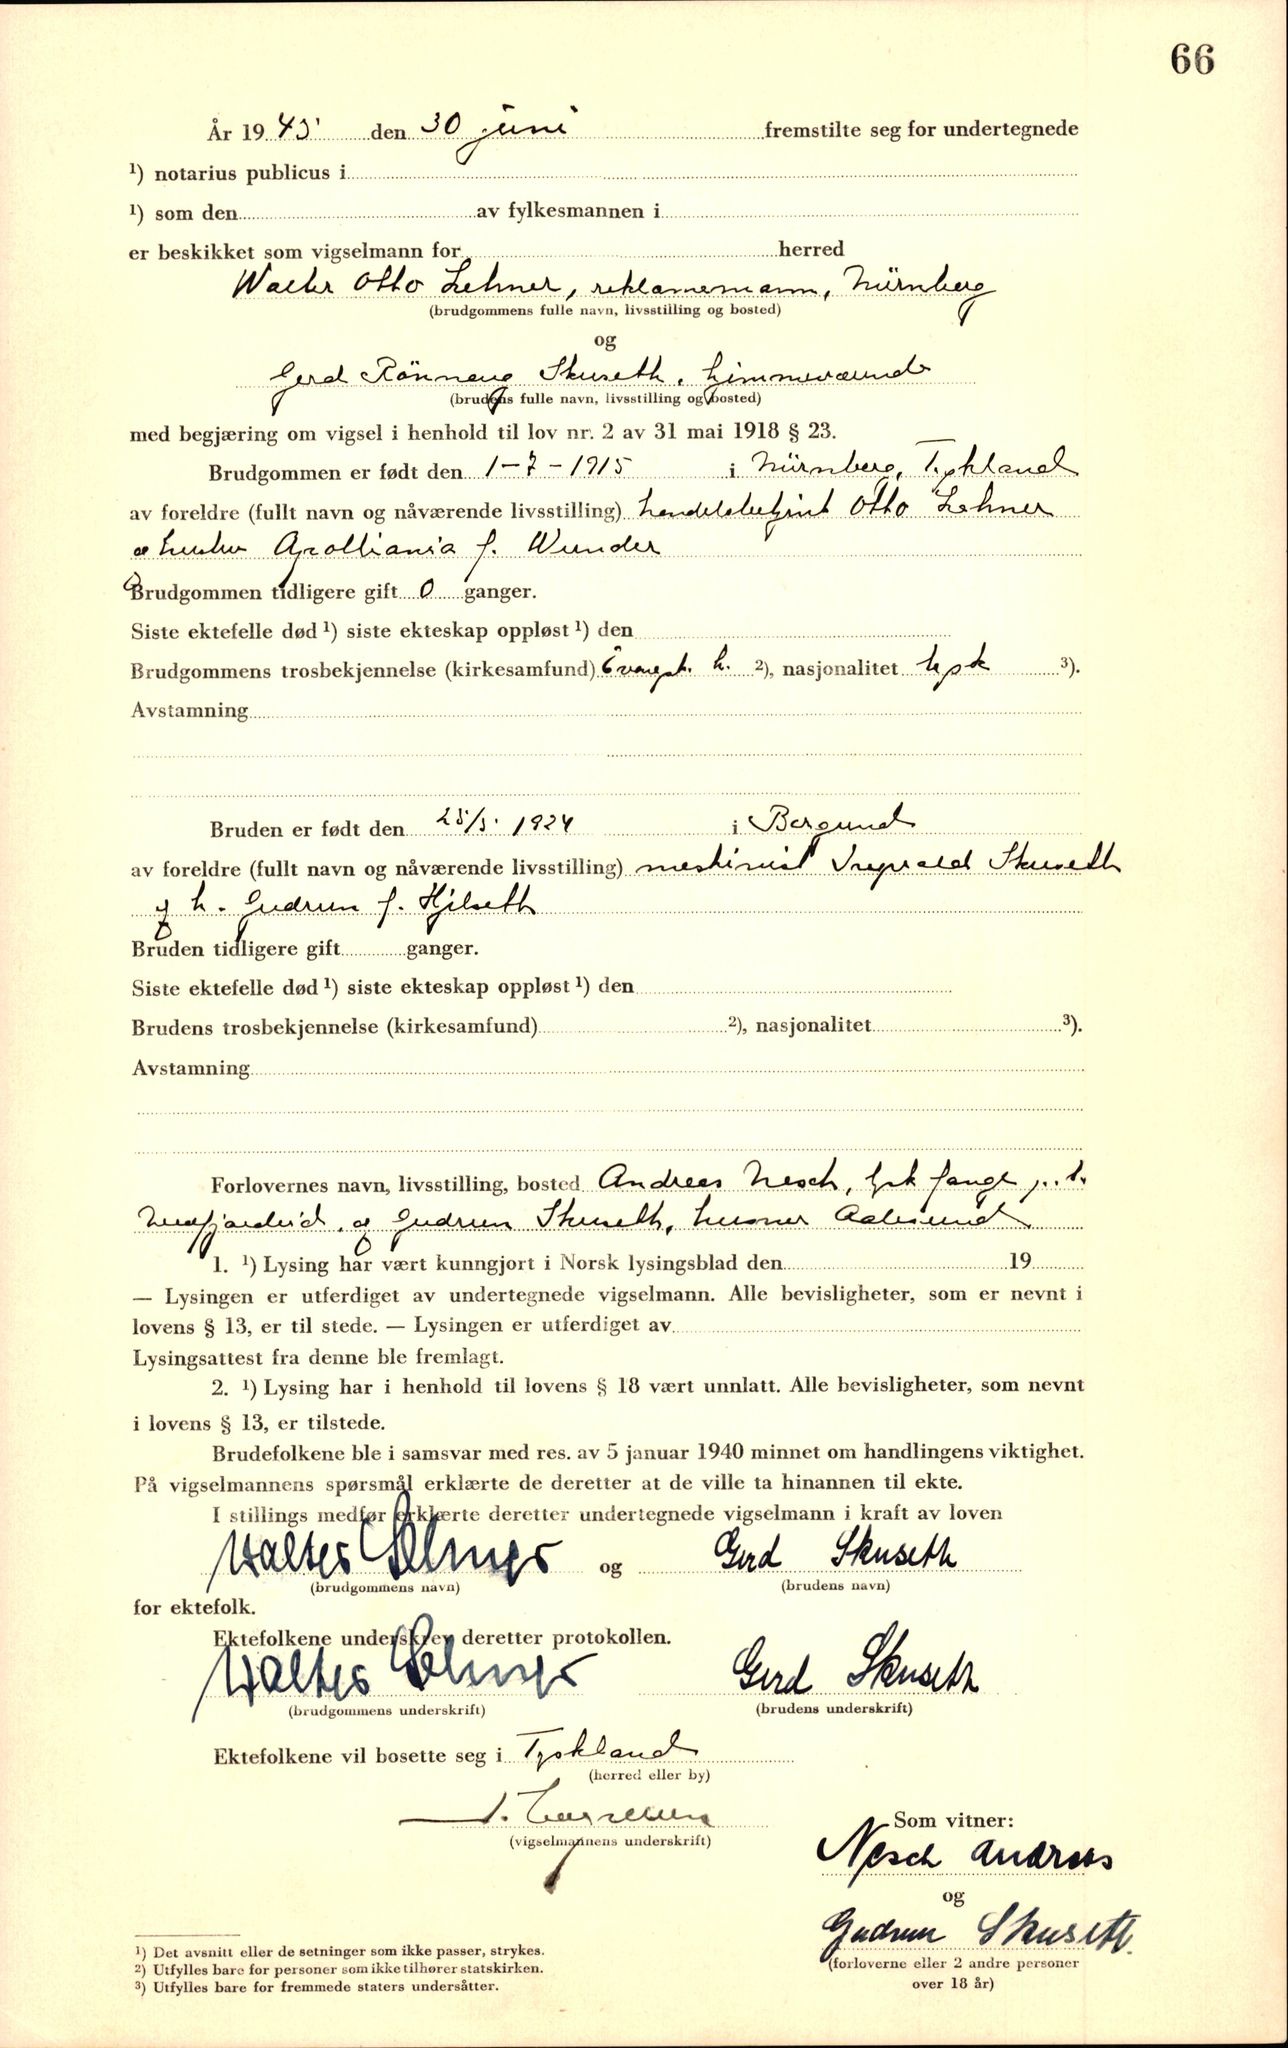 66
År 1945 den 30 juni fremstilte seg for undertegnede
¹) notarius publicus i
¹) som den av fylkesmannen i
er beskikket som vigselmann for herred
Walter Otto Lehner, reklamemann, Nürnberg
(brudgommens fulle navn, livsstilling og bosted)
og
Gerd Rönnaug Skuseth,
(brudens fulle navn, livsstilling og bosted)
med begjæring om vigsel i henhold til lov nr. 2 av 31 mai 1918 § 23.
Brudgommen er født den 1-7-1915 i Nürnberg, Tyskland
av foreldre (fullt navn og nåværende livsstilling) handelsbetjent Otto Lehner
og hustru f. Wunder
Brudgommen tidligere gift 0 ganger.
Siste ektefelle død ¹) siste ekteskap oppløst ¹) den
Brudgommens trosbekjennelse (kirkesamfund) l. ²), nasjonalitet tysk ³).
Avstamning
Bruden er født den 25/5. 1924 i Borgund
av foreldre (fullt navn og nåværende livsstilling) maskinist Ingvald Skuseth
og h. Gudrun f. Hjelseth
Bruden tidligere gift ganger.
Siste ektefelle død ¹) siste ekteskap oppløst ¹) den
Brudens trosbekjennelse (kirkesamfund) ²), nasjonalitet ³).
Avstamning
Forlovernes navn, livsstilling, bosted Andreas Nesch, tysk fange p. t.
og Gudrun Skuseth, husmor Aalesund
1. ¹) Lysing har vært kunngjort i Norsk lysingsblad den 19
— Lysingen er utferdiget av undertegnede vigselmann. Alle bevisligheter, som er nevnt i
lovens § 13, er til stede. — Lysingen er utferdiget av
Lysingsattest fra denne ble fremlagt.
2. ¹) Lysing har i henhold til lovens § 18 vært unnlatt. Alle bevisligheter, som nevnt
i lovens § 13, er tilstede.
Brudefolkene ble i samsvar med res. av 5 januar 1940 minnet om handlingens viktighet.
På vigselmannens spørsmål erklærte de deretter at de ville ta hinannen til ekte.
I stillings medfør erklærte deretter undertegnede vigselmann i kraft av loven
Walter Lehner og Gerd Skuseth
(brudgommens navn) (brudens navn)
for ektefolk.
Ektefolkene underskrev deretter protokollen.
Walter Lehner Gerd Skuseth
(brudgommens underskrift) (brudens underskrift)
Ektefolkene vil bosette seg i Tyskland
(herred eller by)
(vigselmannens underskrift)
Som vitner:
Nesch Andreas
og
Gudrun Skuseth.
(forloverne eller 2 andre personer
over 18 år)
¹) Det avsnitt eller de setninger som ikke passer, strykes.
²) Utfylles bare for personer som ikke tilhører statskirken.
³) Utfylles bare for fremmede staters undersåtter.